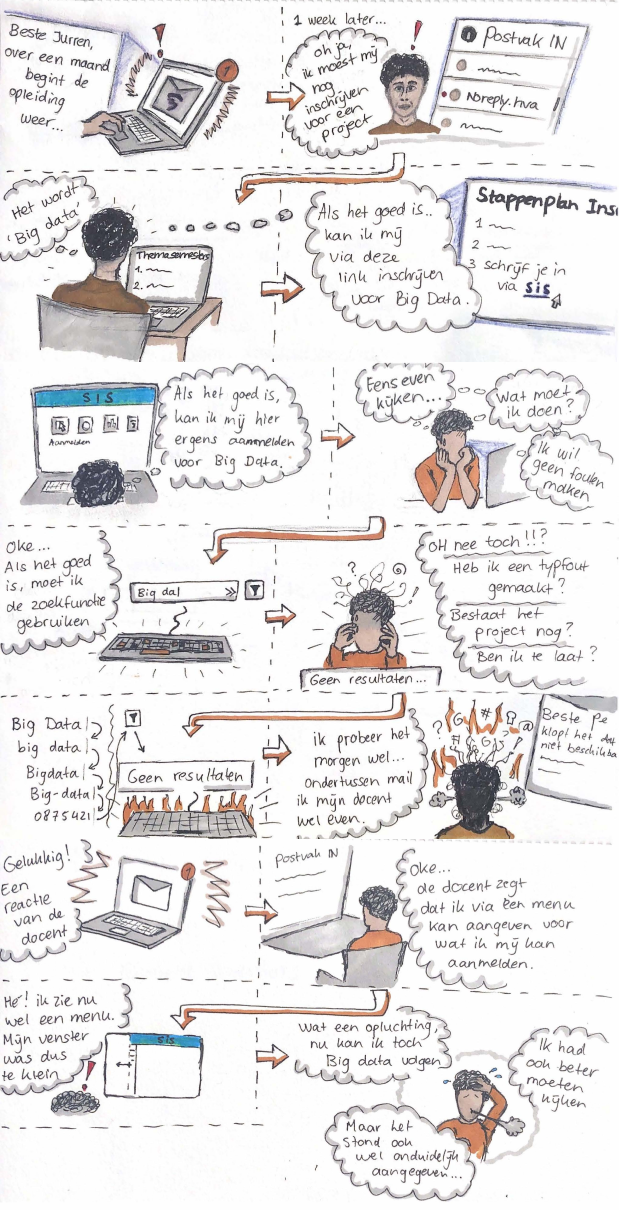 Beste Jurren,
over een maand
begint de
opleiding
weer...
1
!
1 week later...
oh ja,
ik moest mij
nog
inschrijven
voor een
project
!
1 Postvak IN
Noreply.hva
Het wordt
'Big data'
Themasemesters
1.
2.
Als het goed is..
kan ik mij
via deze
link inschrijven
voor Big Data.
Stappenplan Ins
1
2
3 schrijf je in
via sis
SIS
Aanmelden
Als het goed is,
kan ik mij hier
ergens aanmelden
voor Big Data.
Eens even
kijken...
Wat moet
ik doen?
Ik wil
geen fouten
maken
Oke...
Als het goed
is, moet ik
de zoekfunctie
gebruiken
Big dal
? @
OH nee toch!!?
Heb ik een typfout
gemaakt?
Bestaat het
project nog?
Ben ik te laat?
Geen resultaten...
Big Data
big data
Bigdata
Big-data
0875421
Geen resultaten
ik probeer het
morgen wel...
ondertussen mail
ik mijn docent
wel even.
? G # ! @
Beste Pe
klopt het dat
niet beschikba
Gelukkig!
Een
reactie
van de
docent
1
Postvak IN
Oke...
de docent zegt
dat ik via een menu
kan aangeven voor
wat ik mij kan
aanmelden.
He! ik zie nu
wel een menu.
Mijn venster
was dus
te klein
!
SIS
Wat een opluchting,
nu kan ik toch
Big data volgen
Ik had
ook beter
moeten
kijken
Maar het
stond ook
wel onduidelijk
aangegeven...